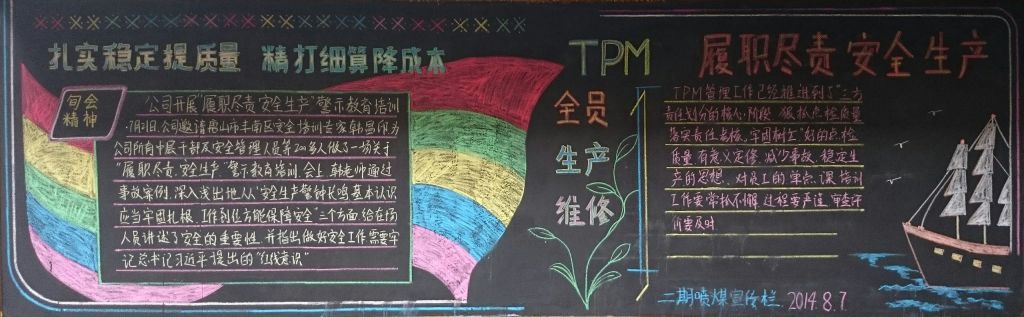 扎实稳定提质量 精打细算降成本
旬会
精神
公司开展"履职尽责 安全生产"警示教育培训
月2日,公司邀请唐山市丰南区安全培训专家韩昌印为
公司所有中层干部及安全管理人员等200多人做了一场关于
"履职尽责、安全生产"警示教育培训 会上 韩老师通过
事故案例,深入浅出地从"安全生产警钟长鸣 基本认识
应当牢固扎根 工作到位方能保障安全"三个方面 给在场
人员讲述了安全的重要性 并指出做好安全工作需要牢
记总书记习近平提出的"红线意识"
TPM
全员
生产
维修
履职尽责 安全生产
TPM管理工作已经推进到了"三方
责任划分的核心阶段 狠抓点检质量
落实责任考核 牢固树立"好的点检
质量 有意义定修 减少事故 稳定生
产的思想 对员工的单点课 培训
工作要常抓不懈 过程要严谨 审查评
价要及时
二期喷煤宣传栏 2014.8.7